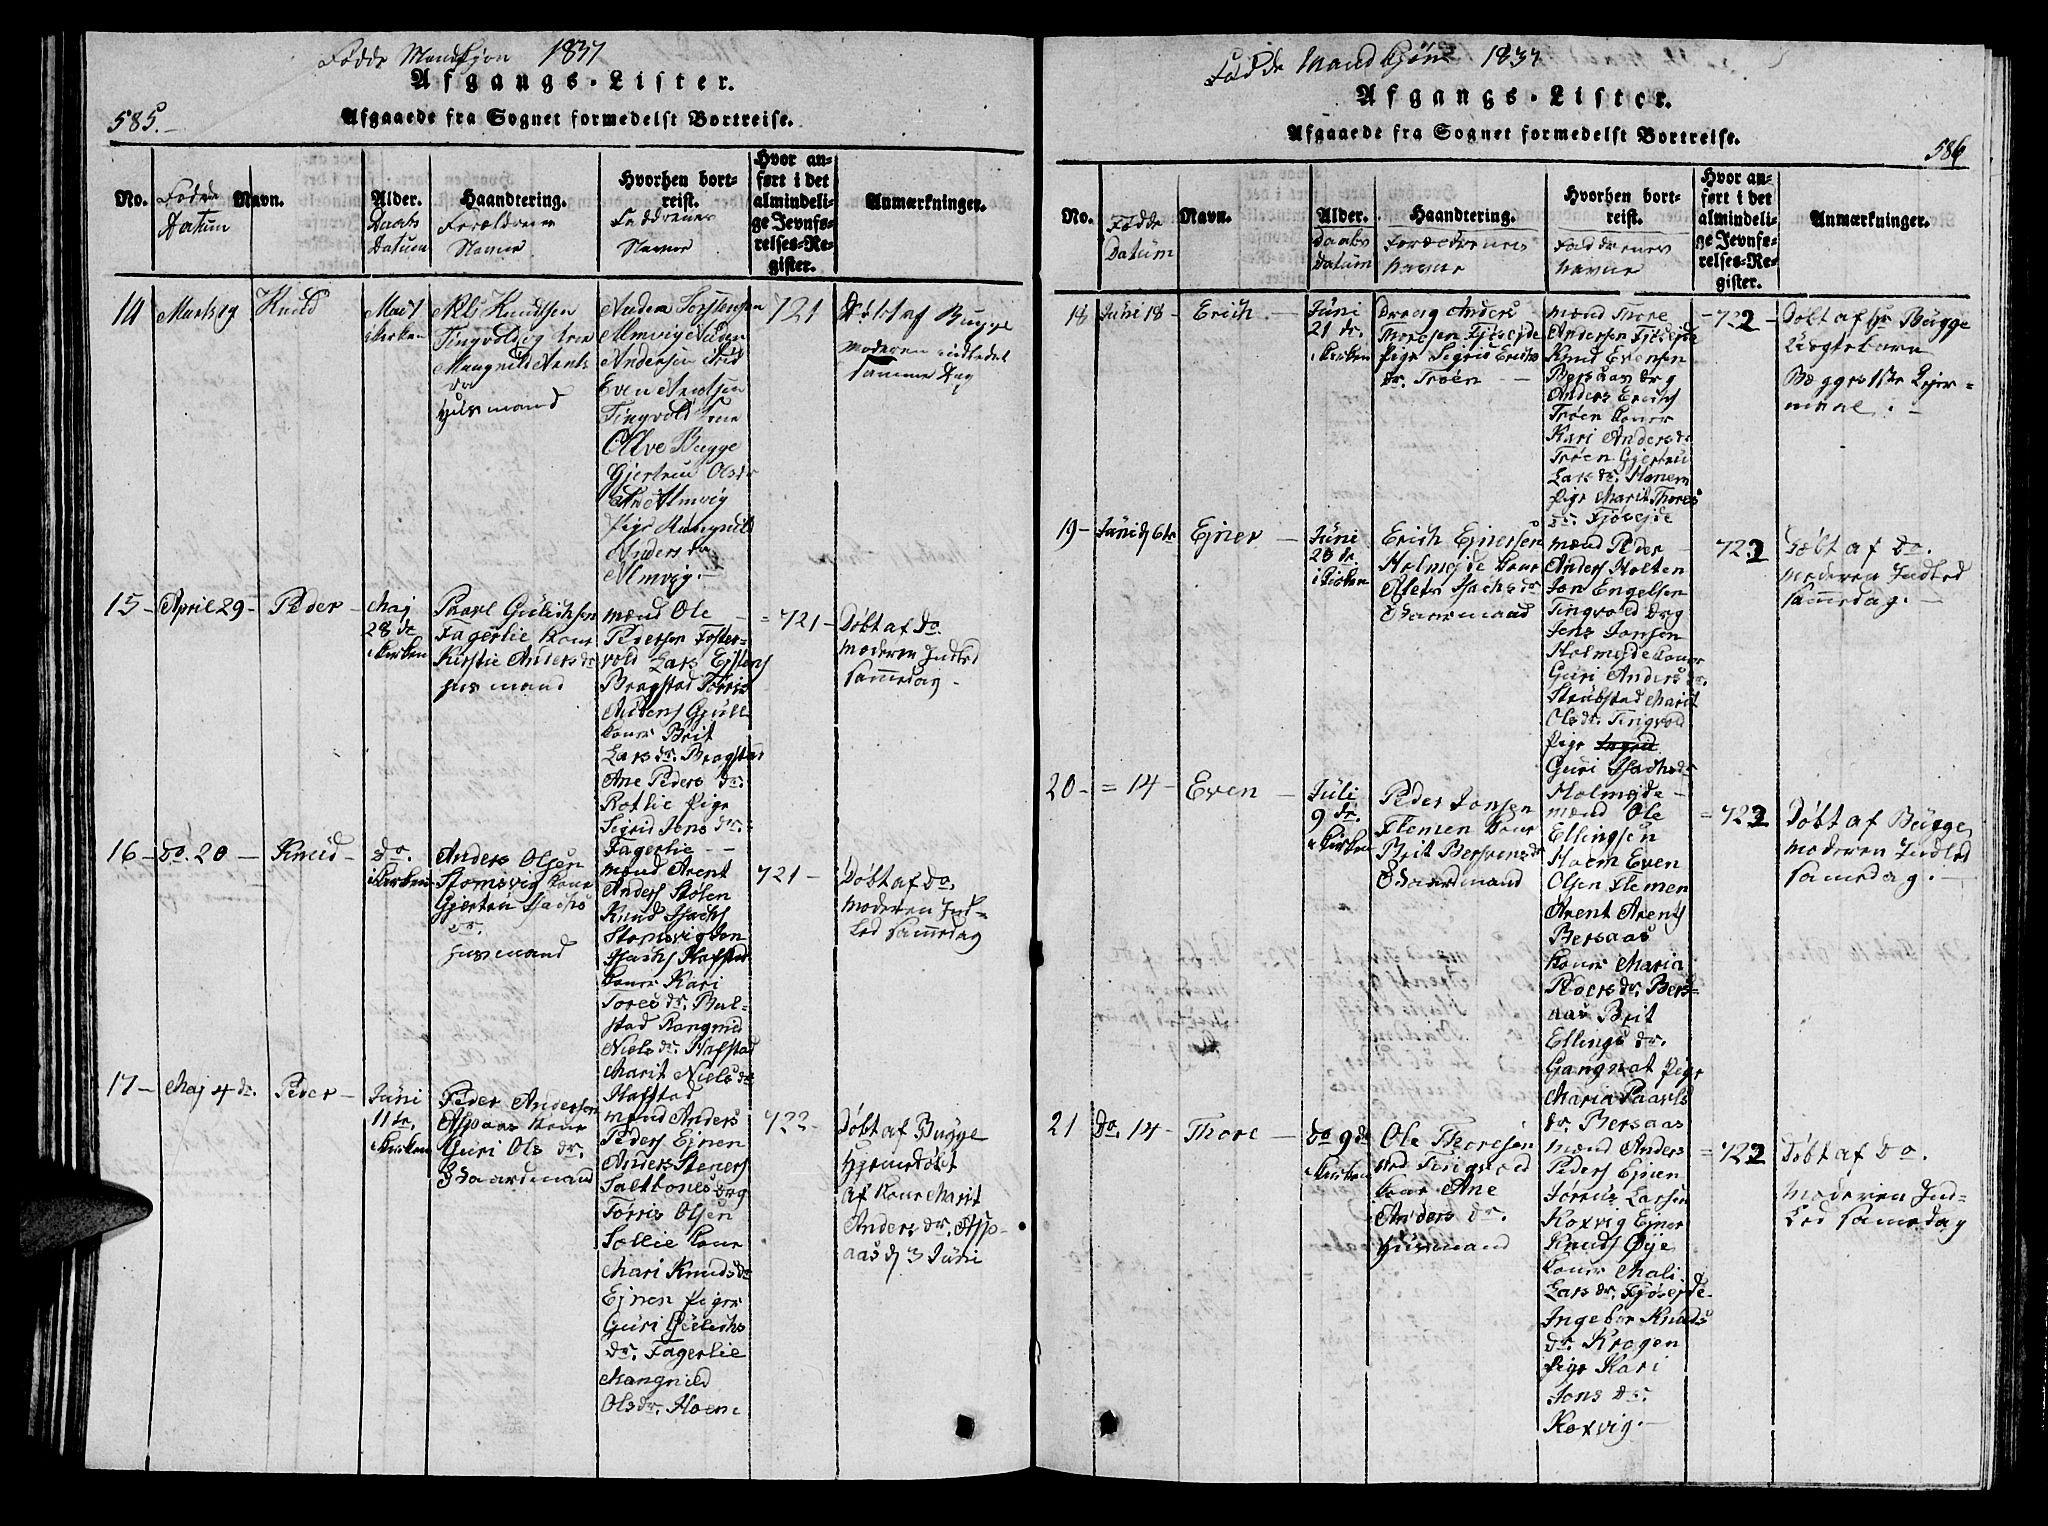 Fødde Mandkjøn 1837
Afgangs-Lister.
585.
Afgaaede fra Sognet formedelst Bortreise.
No.
Fødde Datum
Navn.
Alder.
Daabs Datum
Haandtering.
Forældrenes Navne
Hvorhen bortreist.
Faddrenes Navne
Hvor anført i det almindelige Jevnførelses-Register.
Anmærkninger.
14
Marts 19
Knud
i Kirken
Knudsen
Tingvold
Husmand
Anders Torstensen
Almvig
Andersen
Even
Tingvold
Bugge
Gjertru Olsdr
Almvig
Pige
Anders dr
Almvig.
721
Døbt af Bugge
Moderen indledet
samme Dag
15 - April 29 - Peder -
Maj
28 de
i Kirken
Paavl Gulichsen
Fagerlie Kone
Kirstie Anders dr
Husmand
mænd Ole
Pedersen Foster-
vold Lars
Bragstad Torris
Konr Brit
Lars dr. Bragstad
Ane Peders dr.
Rotlie Pige
Sigrid Jons dr.
Fagerlie
= 721 -
Døbt af Do.
moderen Indled
sammedag -
16 - Do. 20 - Knud -
Do.
i Kirken
Anders Olsen
Stomsvig Kone
Gjertru Isachs
dr.
Husmand
mænd Arent
Anders Stølen
Knud Isachs
Stomsvig Jon
Isachs Hafstad
Koner Kari
Tores dr. Bul-
stad Rangnild
Niels dr. Hafstad
Marit Niels dr
Hafstad
721 -
Døbt af Do.
moderen Ind-
led sammedag
17 - Maj 4 de. Peder -
Juni
11 te.
i Kirken
Peder Andersen
Aspaas Kone
Guri Ols dr.
Gaardmand
mænd Anders
Peders Ejnen
Anders Steners
Saltbones Drg
Torris Olsen
Sollie Kone
Mari Knuds dr
Ejnen Piger
Guri Gulichs
dr. Fagerlie
Mangnild
Ols dr. Hoem
722 -
Døbt af Bugge
Hjemedøbt
af Kone Marit
Anders dr. Asp-
aas d 3 Juni
Fødde Mandkjøn 1837
Afgangs-Lister.
Afgaaede fra Sognet formedelst Bortreise.
586
No.
Fødde Datum
Navn.
Alder.
Daabs Datum
Haandtering.
Forældrenes Navne
Hvorhen bortreist.
Faddrenes Navne
Hvor anført i det almindelige Jevnførelses-Register.
Anmærkninger.
18 Juni 18 - Erich -
Juni
21 de.
i Kirken
Dreng Anders
Thoresen Fjøsejde
Pige Sigrid Erichs
dr. Trøen -
mænd Thore
Andersen Fjøsejde
Knud Evensen
Bersaas Drg
Anders Erichs
Trøen Koner
Kari Anders dr
Trøen Gjertru
Lars dr. Honem
Pige Marit Thores
dr. Fjøsejde
722 -
Døbt af Hr Bugge
Uegtebarn
Begges 1ste Lejer-
maal. -
19 - Juni d 6te Ejner -
Juni
28 de.
i Kirken
Erich Ejnersen
Holmejde Kone
Isachs dr
Gaardmand
mænd Peder
Anders Holten
Jon Engelsen
Tingvold Drg
Jens Jonsen
Holmejde Koner
Guri Anders dr.
Strubstad Marit
Ols dr. Tingvold
Pige Ingrid
Guri Isachs dr
Holmejde -
722
Døbt af Do.
moderen Indled
sammedag. -
20 - = 14 - Even -
Juli
9 de.
i Kirken
Peder Jonsen
Flemen Kone
Brit Bersvens dr
Gaardmand
mænd Ole
Ellingsen
Hoem Even
Olsen Flemen
Arent Arents
Bersaas
Koner Maria
Roers dr. Bers-
aas Brit
Ellings dr.
Gangnat Pige
Maria Paavls
dr. Bersaas
= 722
Døbt af Bugge
moderen Indled
sammedag. -
21 Do. 14 - Thore -
Do 9 de
i Kirken
Ole Thoresen
ved Tingvold
Kone Ane
Anders dr.
Husmand
mænd Anders
Peders Ejnen
Jørens Larsen
Koxvig Ejner
Knuds Øye
Koner Mali
Lars dr. Fjøsejde
Ingebor Knuds
dr. Krogen
Pige Kari
Jons dr.
Koxvig. -
= 722
Døbt af Do.
Moderen Ind-
led sammedag